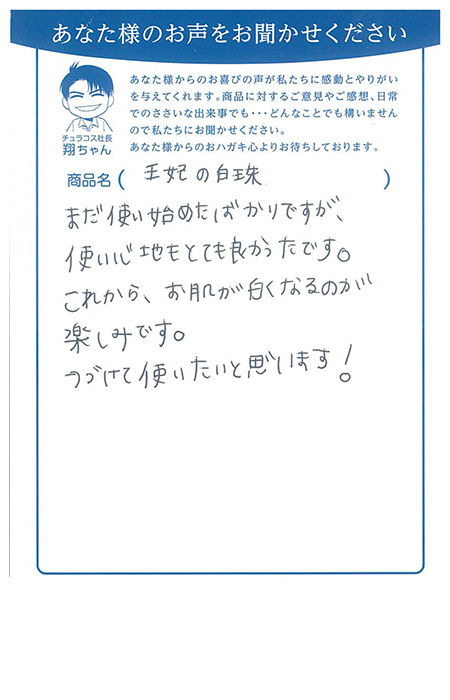 あなた様のお声をお聞かせください
あなた様からのお喜びの声が私たちに感動とやりがい
を与えてくれます。商品に対するご意見やご感想、日常
でのささいな出来事でも・・・どんなことでも構いません
ので私たちにお聞かせください。
あなた様からのおハガキ心よりお待ちしております。
チュラコス社長
翔ちゃん
商品名( 王妃の白珠 )
まだ使い始めたばかりですが、
使い心地もとても良かったです。
これから、お肌が白くなるのが
楽しみです。
つづけて使いたいと思います!